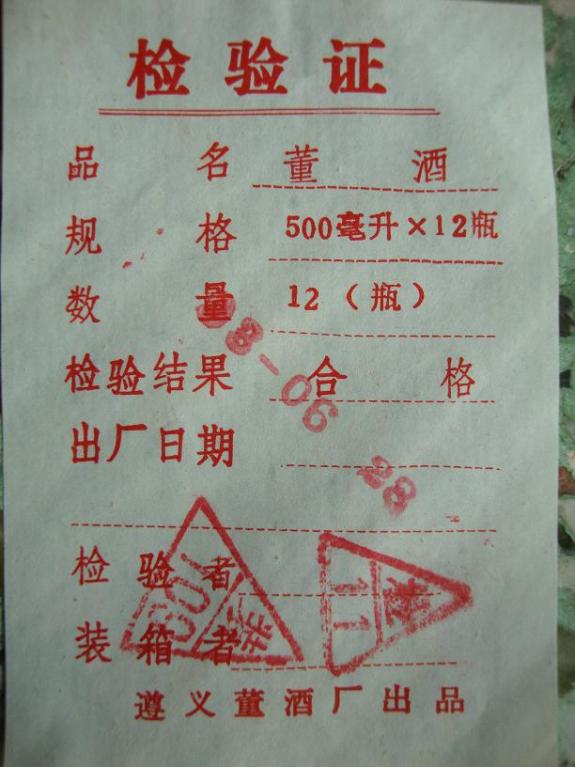 检验证
品名 董酒
规格 500毫升×12瓶
数量 12（瓶）
检验结果 合格
出厂日期
98-06 28
检验者
装箱者
遵义董酒厂出品